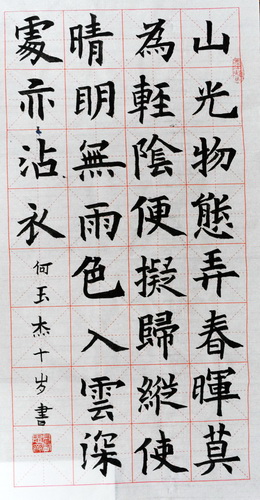 山光物態弄春暉莫
為輕陰便擬歸縱使
晴明無雨色入雲深
處亦沾衣
何玉杰十岁書